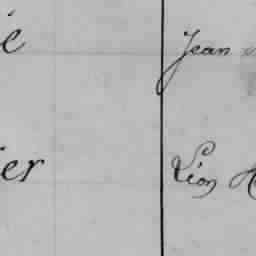 é Jean
ier Léon